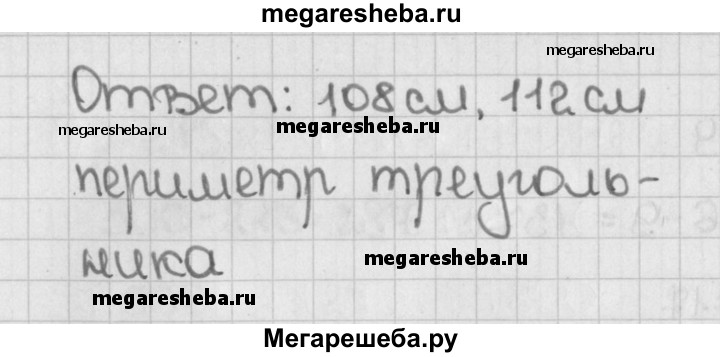 megaresheba.ru
megaresheba.ru
Ответ: 108 см, 112 см
megaresheba.ru
megaresheba.ru
периметр треуголь-
megaresheba.ru
megaresheba.ru
ника
megaresheba.ru
megaresheba.ru
Мегарешеба.ру